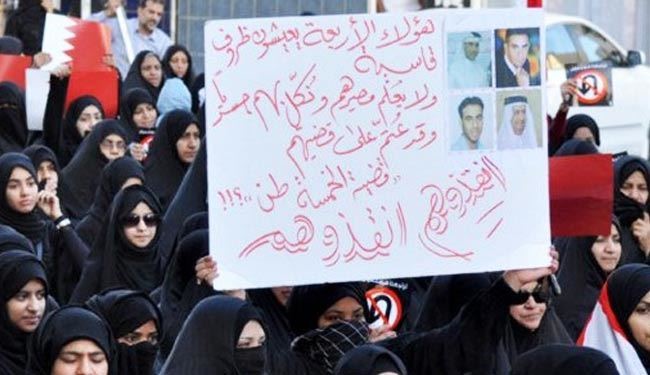 هؤلاء الأربعة يعيشون ظروف
قاسية
ولا يعلم مصيرهم ونُكّل بهم جسديًا
وقد عُتّم على قضيتهم
"قضية الخمسة طن"؟!!
انقذوهم انقذوهم